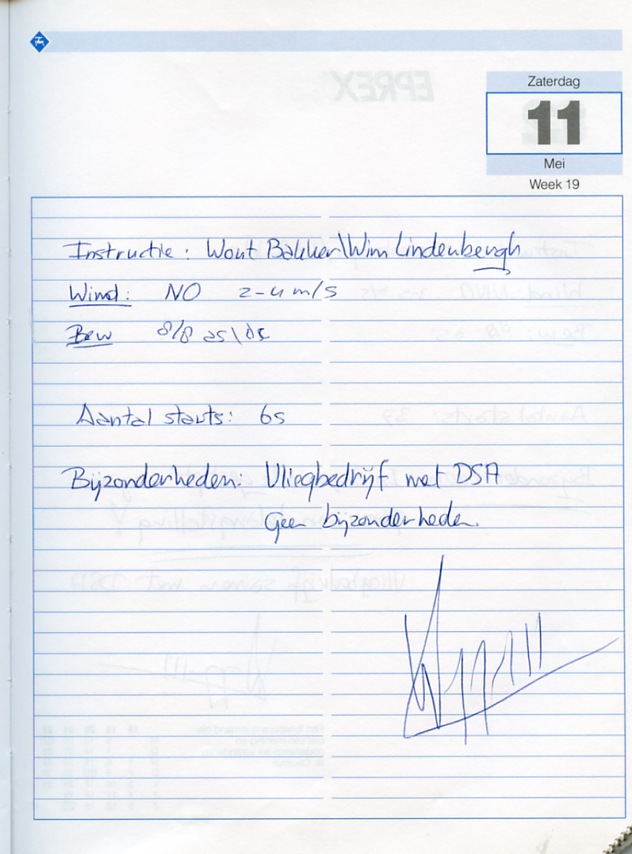 Zaterdag
11
Mei
Week 19
Instructie: Wout Bakker\Wim Lindenbergh
Wind: NO 2-4 m/s
Bew 8/8 as\ds
Aantal starts: 65
Bijzonderheden: Vliegbedrijf met DSA
Geen bijzonderheden.